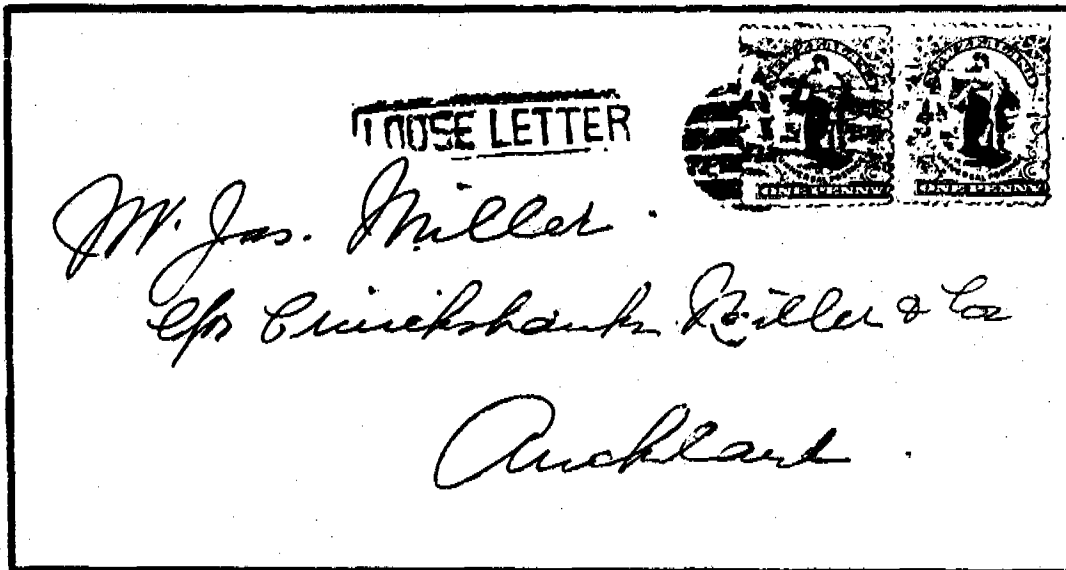 LOOSE LETTER
ONE PENNY ONE PENNY
Mr. Jas. Miller.
c/o Cruickshank Miller & Co
Auckland.